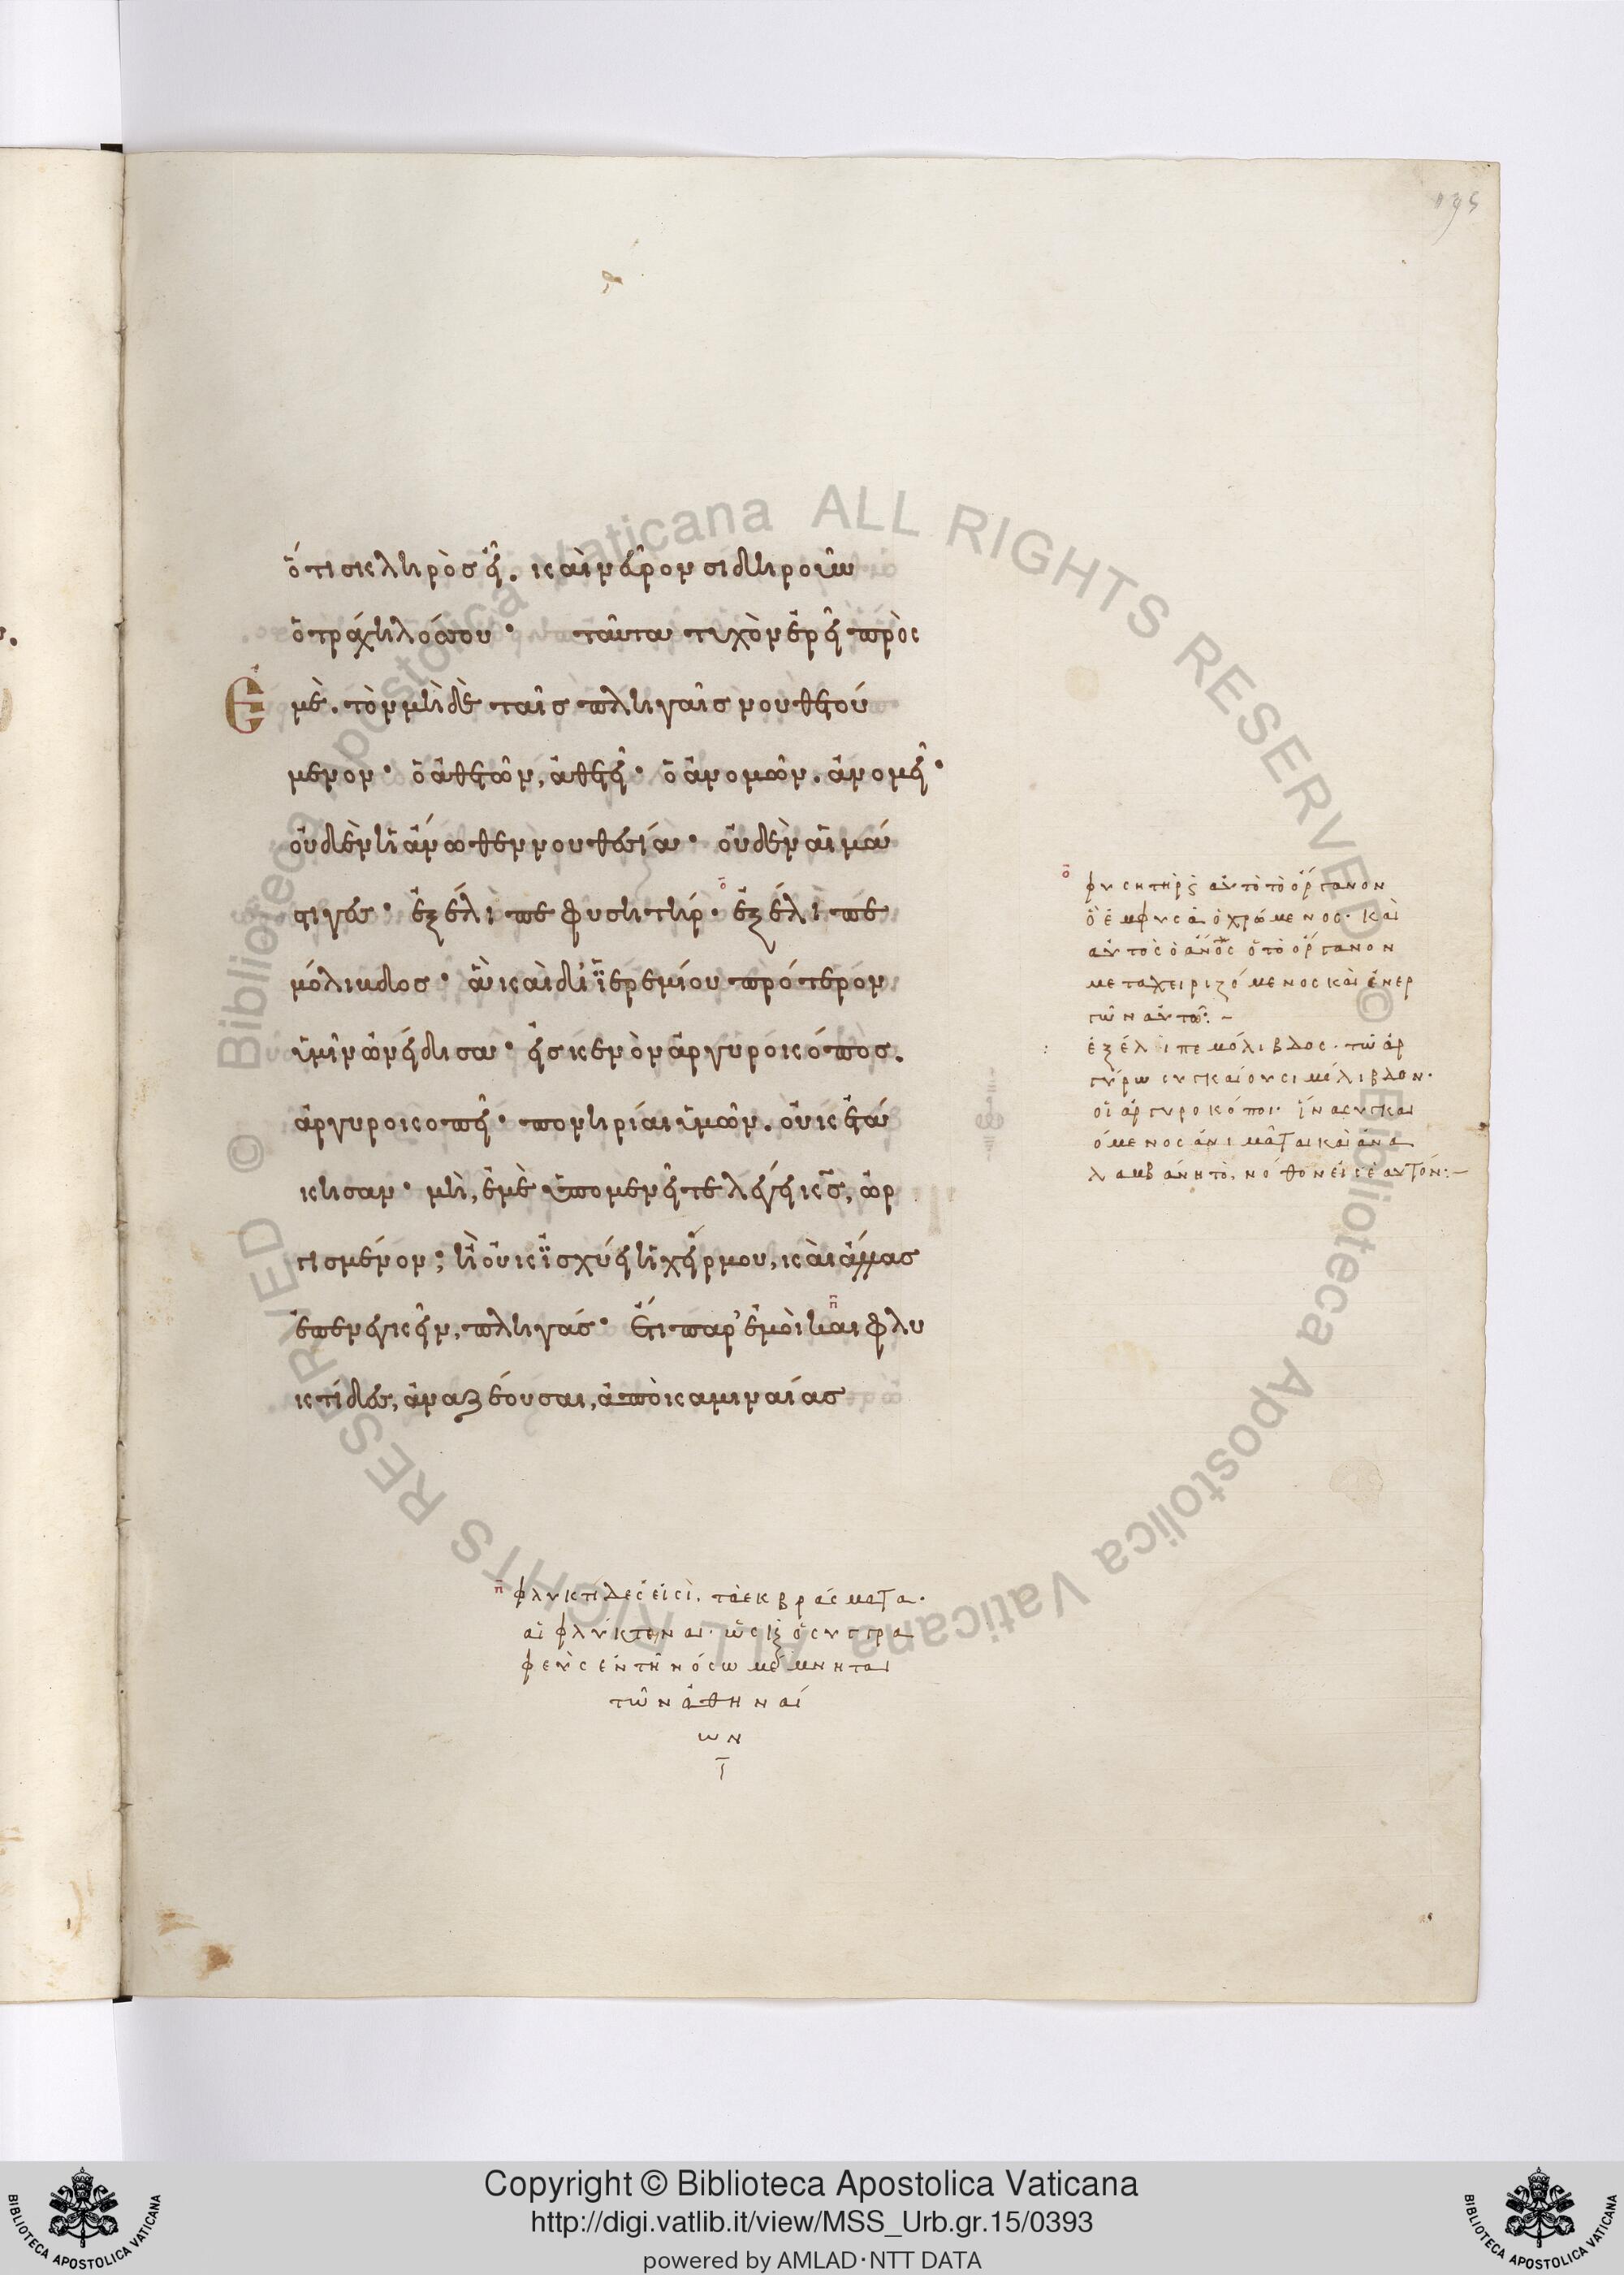 195
ὅτι σκληρὸς εἶ. καὶ νεῦρον σιδηροῦν
ὁ τράχηλός σου· ταῦτα τυχὸν ἐρεῖ πρὸς
ἐμὲ. τὸν μὴ δὲ ταῖς πληγαῖς νουθετού
μενον· ὁ ἀθετῶν, ἀθετεῖ· ὁ ἀνομῶν. ἀνομεῖ·
οὐδὲν ἡ ἄνωθεν νουθεσία· οὐδὲν αἱ μά
στιγες· ἐξέλιπε φυσητήρ· ἐξέλιπε
μόλιβδος· ἃ καὶ δι' ἱερεμίου πρότερον
ὑμῖν ὠνείδισα· εἰς κενὸν ἀργυροκόπος.
ἀργυροκοπεῖ· πονηρίαι ὑμῶν. οὐκ ἐτά
κησαν· μὴ, ἐμὲ ὑπομενεῖτε λέγει κς, ὠρ
γισμένον; ἢ οὐκ ἰσχύει ἡ χείρ μου, καὶ ἄλλας
ἐπενεγκεῖν, πληγάς· ἔτι παρ' ἐμοὶ καὶ φλυ
κτίδες, ἀναζέουσαι, ἀπὸ καμιναίας
ο φυσητὴρ ς αὐτὸ τὸ ὄργανον
ὃ ἐμφυσᾶ ὁ χρώμενος· καὶ
αὐτὸς ὁ ανος ὁ τὸ ὄργανον
μεταχειριζόμενος καὶ ἐνερ
γῶν αὐτῶ: –
ἐξέλιπε μόλιβδος· τῶ ἀρ
γύρω συγκαίουσι μόλιβδον·
οἱ ἀργυροκόποι· ἵνα συγκαι
όμενος ἀνιμᾶται καὶ ἀνα
λαμβάνη τὸ, νόθον εἰς ἑαυτόν: –
π φλυκτίδες εἰσὶ. τὰ ἐκβράσματα·
αἱ φλύκτεναι· ὡς ὁ συγγρα
φεὺς ἐν τῆ νόσω μέμνηται
τῶν ἀθηναί
ων
Copyright © Biblioteca Apostolica Vaticana
http://digi.vatlib.it/view/MSS_Urb.gr.15/0393
powered by AMLAD·NTT DATA
BIBLIOTECA APOSTOLICA VATICANA
BIBLIOTECA APOSTOLICA VATICANA
© Biblioteca Apostolica Vaticana ALL RIGHTS RESERVED
© Biblioteca Apostolica Vaticana ALL RIGHTS RESERVED